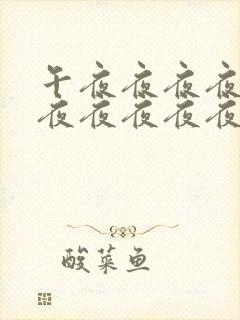 午夜夜夜夜
夜夜夜夜夜
酸菜鱼